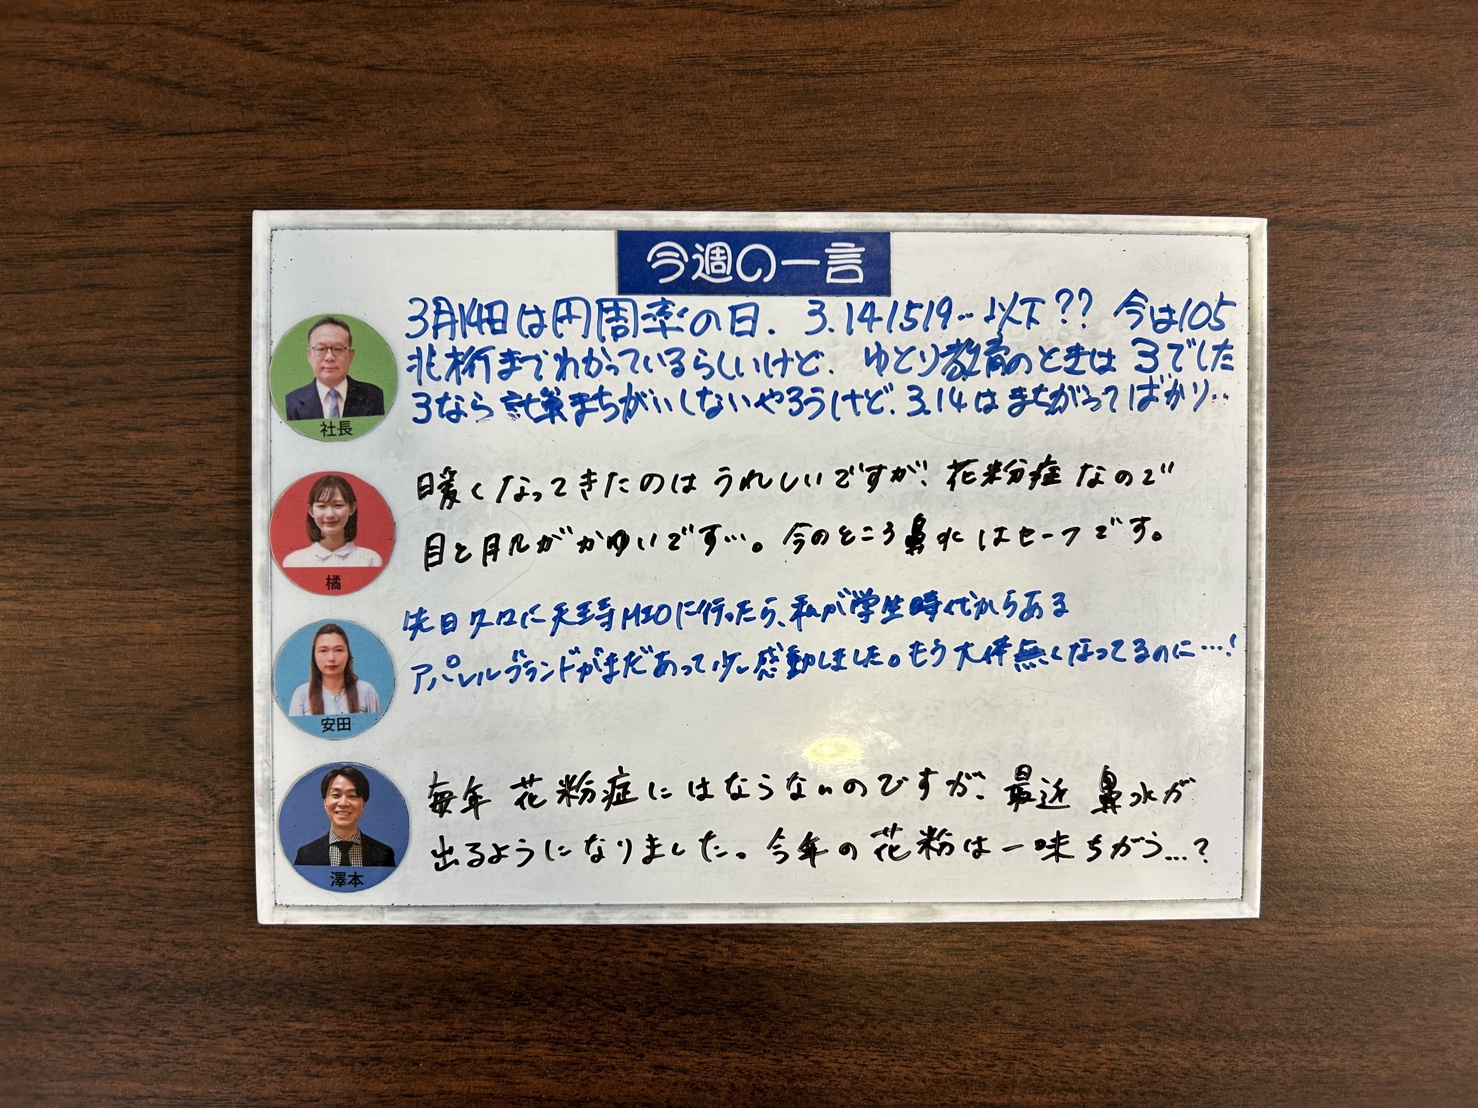 今週の一言
3月14日は円周率の日. 3.141519…以下?? 今は105
兆桁までわかっているらしいけど. ゆとり教育のときは3でした
3なら計算まちがいしないやろうけど. 3.14はまちがってばかり‥
社長
暖くなってきたのはうれしいですが、花粉症なので
目と肌がかゆいです…。今のところ鼻水はセーフです。
橘
先日久々に天王寺MIOに行ったら、私が学生時代からある
アパレルブランドがまだあって少し感動しました。もう大体無くなってるのに…!
安田
毎年花粉症にはならないのですが、最近鼻水が
出るようになりました。今年の花粉は一味ちがう…?
澤本